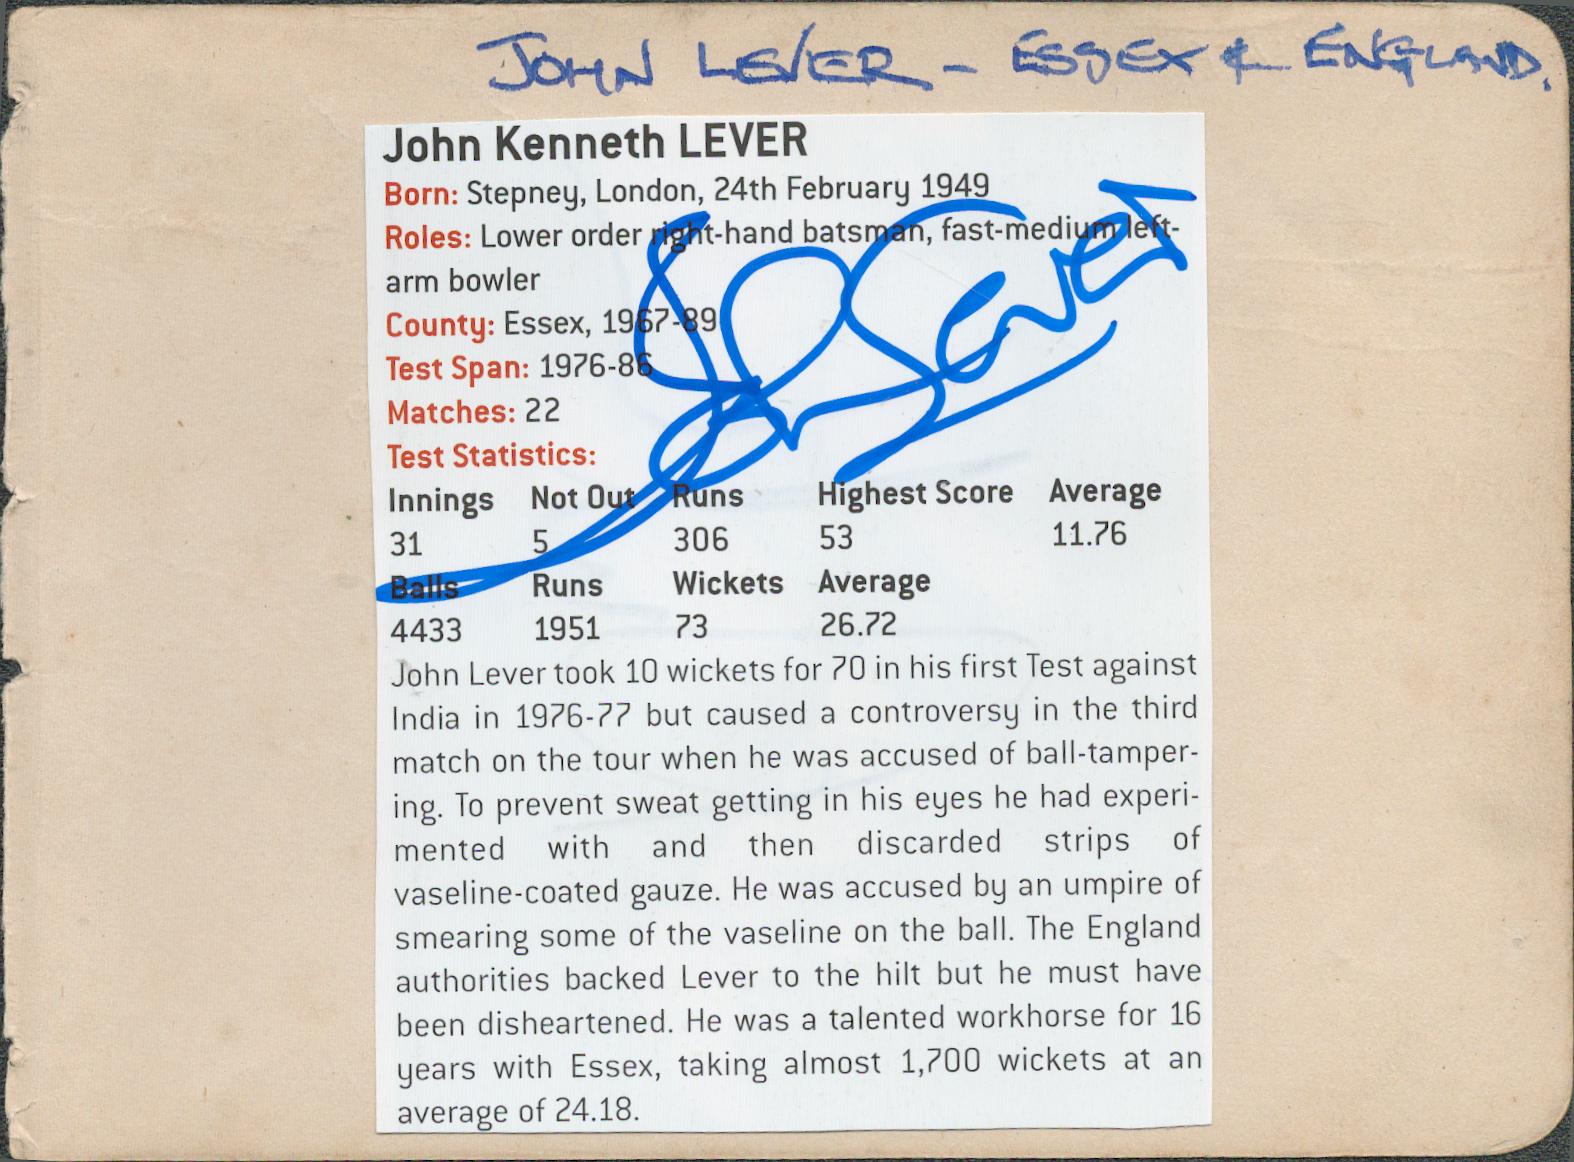 JOHN LEVER - ESSEX & ENGLAND.
John Kenneth LEVER
Born: Stepney, London, 24th February 1949
Roles: Lower order right-hand batsman, fast-medium left-
arm bowler
County: Essex, 1967-89
Test Span: 1976-86
Matches: 22
Test Statistics:
Innings Not Out Runs Highest Score Average
31 5 306 53 11.76
Balls Runs Wickets Average
4433 1951 73 26.72
John Lever took 10 wickets for 70 in his first Test against
India in 1976-77 but caused a controversy in the third
match on the tour when he was accused of ball-tamper-
ing. To prevent sweat getting in his eyes he had experi-
mented with and then discarded strips of
vaseline-coated gauze. He was accused by an umpire of
smearing some of the vaseline on the ball. The England
authorities backed Lever to the hilt but he must have
been disheartened. He was a talented workhorse for 16
years with Essex, taking almost 1,700 wickets at an
average of 24.18.
JK Lever